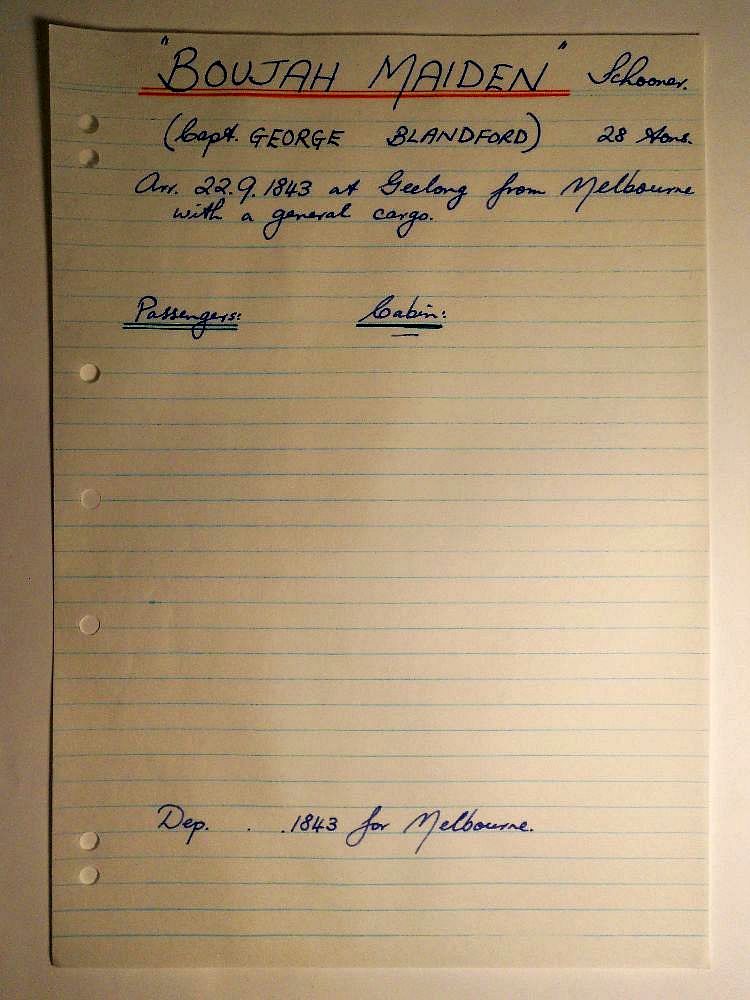 "BOUJAH MAIDEN" Schooner.
(Capt. GEORGE BLANDFORD) 28 tons.
Arr. 22.9.1843 at Geelong from Melbourne
with a general cargo.
Passengers: Cabin:
Dep. . .1843 for Melbourne.